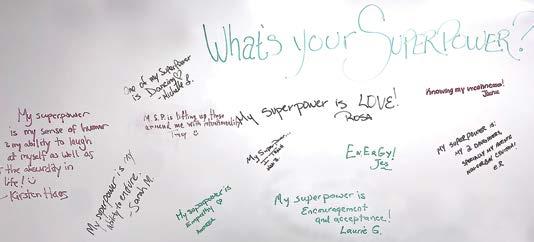 What's your SUPERPOWER?
One of my superpower
is Dancing ♡
Michelle S.
My superpower
is my sense of humor
& my ability to laugh
at myself as well as
the absurdity in
life! ☺
- Kirsten Haas
M.S.P. is lifting up those
around me with intentionality
My superpower is LOVE!
ROSA
Knowing my weaknesses!
Jana
My superpower is my
ability to endure.
- Sarah M.
My Super...
EnErGy!
Jes
MY SUPERPOWER IS:
MY 2 DAUGHTERS
E.R
My superpower is
Empathy
My superpower is
Encouragement
and acceptance!
Laurie G.